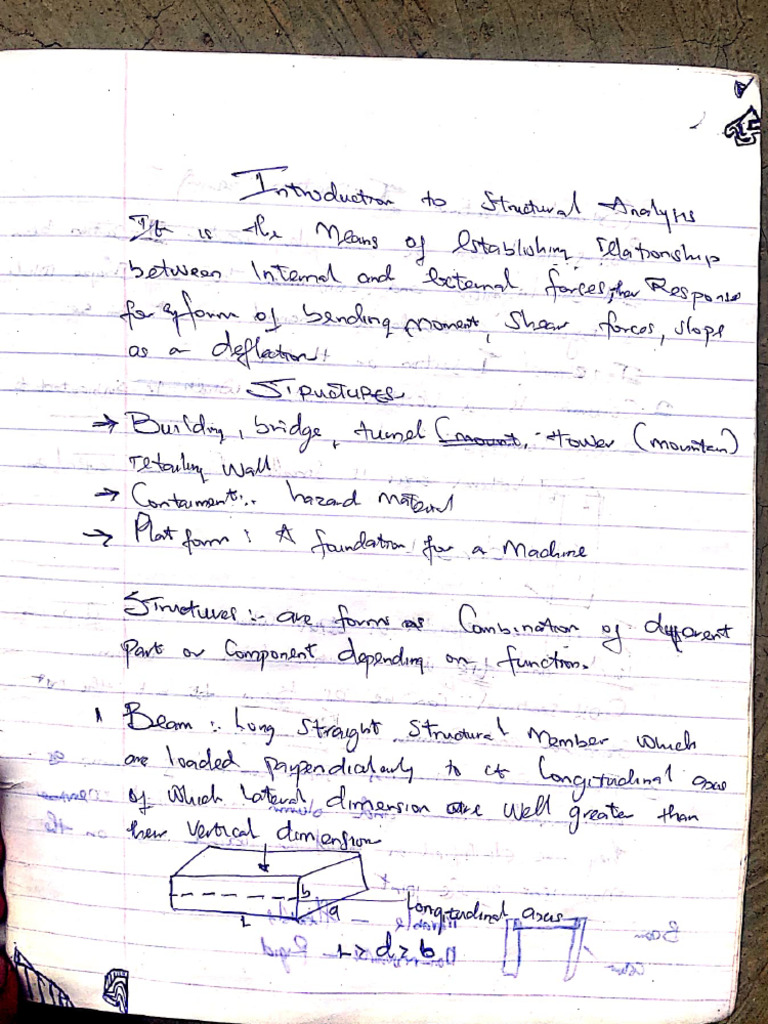 Introduction to Structural Analysis
It is the Means of Establishing relationship
between Internal and External forces, their Response
form of bending moment, Shear forces, slope
as a deflection.
STRUCTURES
→ Building, bridge, tunnel (mount, tower (mountain)
retaining wall
→ Containment:. hazard material
→ Platform: A foundation for a Machine
Structures:- are forms as Combination of different
Part or Component depending on, function.
1 Beam:. Long Straight Structural Member which
are loaded perpendicularly to it Longitudinal axis
of which lateral dimension are well greater than
their vertical dimension
b
Longitudinal axis
L
a
L > d > b